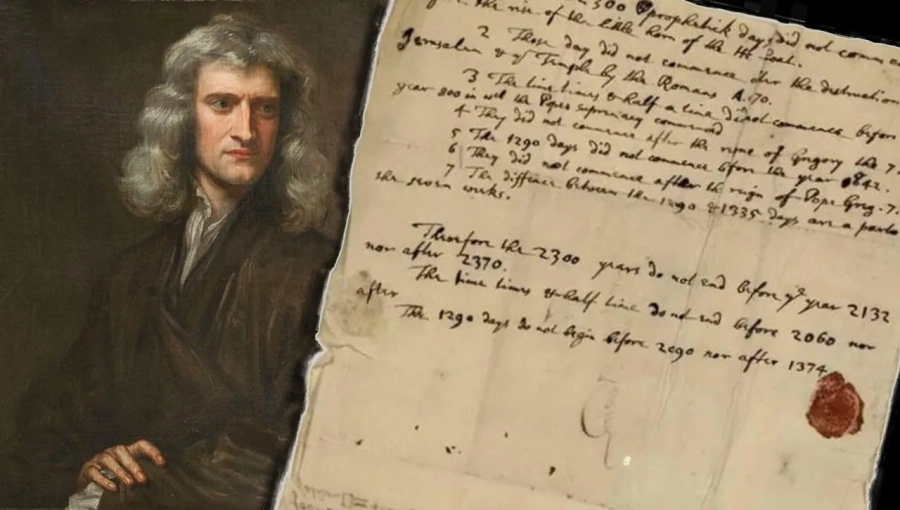 300 prophetick days did not comm
the rise of the little horn of the He Goat.
2 Those day did not commence after the destruction
Jerusalem & ye Temple by the Romans A. 70.
3 The time times & half a time did not commence before
year 800 in wch the Popes supremacy commenced
4 They did not commence after the reigne of Gregory the 7
5 The 1290 days did not commence before the year 842.
6 They did not commence after the reign of Pope Greg. 7.
7 The diffence between the 1290 & 1335 days are a parts
the seven weeks.
Therefore the 2300 years do not end before ye year 2132
nor after 2370.
The time times & half time do not end before 2060 nor
after
The 1290 days do not begin before 2090 nor after 1374